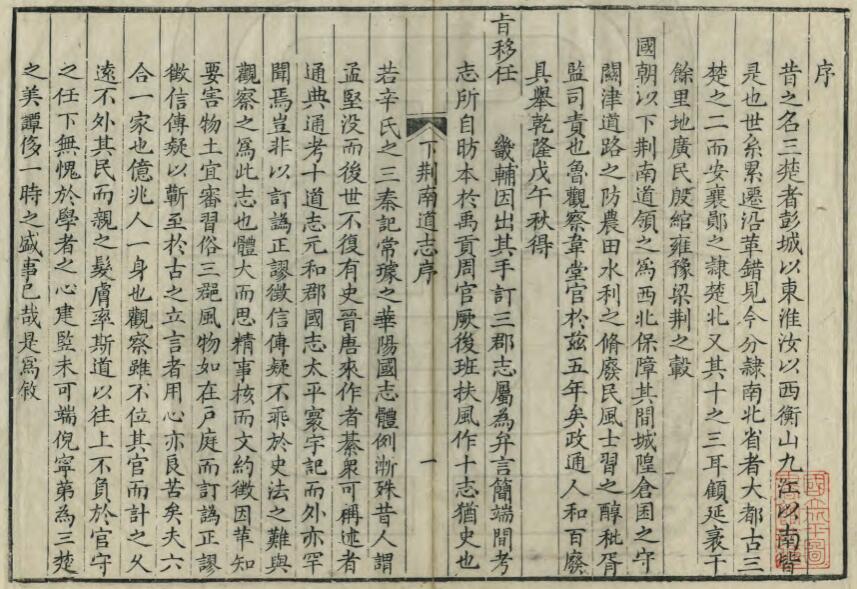 序
昔之名三楚者彭城以東淮汝以西衡山九江以南皆
是也世系累遷沿革錯見今分隷南北省者大都古三
楚之二而安襄鄖之隷楚北又其十之三耳顧延袤千
餘里地廣民殷綰雍豫梁荆之轂
國朝以下荆南道領之爲西北保障其間城隍倉囷之守
關津道路之防農田水利之脩廢民風士習之醇秕胥
監司責也魯觀察韋堂官於玆五年矣政通人和百廢
具舉乾隆戊午秋得
㫖移任　畿輔因出其手訂三郡志屬為弁言簡端間考
志所自昉本於禹貢周官厥後班扶風作十志猶史也
下荆南道志序
一
若辛氏之三秦記常璩之華陽國志體例漸殊昔人謂
孟堅没而後世不復有史晉唐來作者綦衆可稱述者
通典通考十道志元和郡國志太平寰宇記而外亦罕
聞焉豈非以訂譌正謬徵信傳疑不乖於史法之難與
觀察之爲此志也體大而思精事核而文約徵因革知
要害物土宜審習俗三郡風物如在戸庭而訂譌正謬
徵信傳疑以蘄至於古之立言者用心亦良苦矣夫六
合一家也億兆人一身也觀察雖不位其官而計之久
遠不外其民而親之髮膚率斯道以往上不負於官守
之任下無愧於學者之心建監未可端倪寧第為三楚
之美譚侈一時之盛事已哉是爲敘